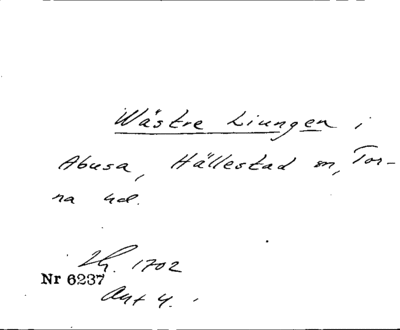 Wästre Liungen i
Abusa, Hällestad sn, Tor-
na hd.
1702
Nr 6237
Ant 4.